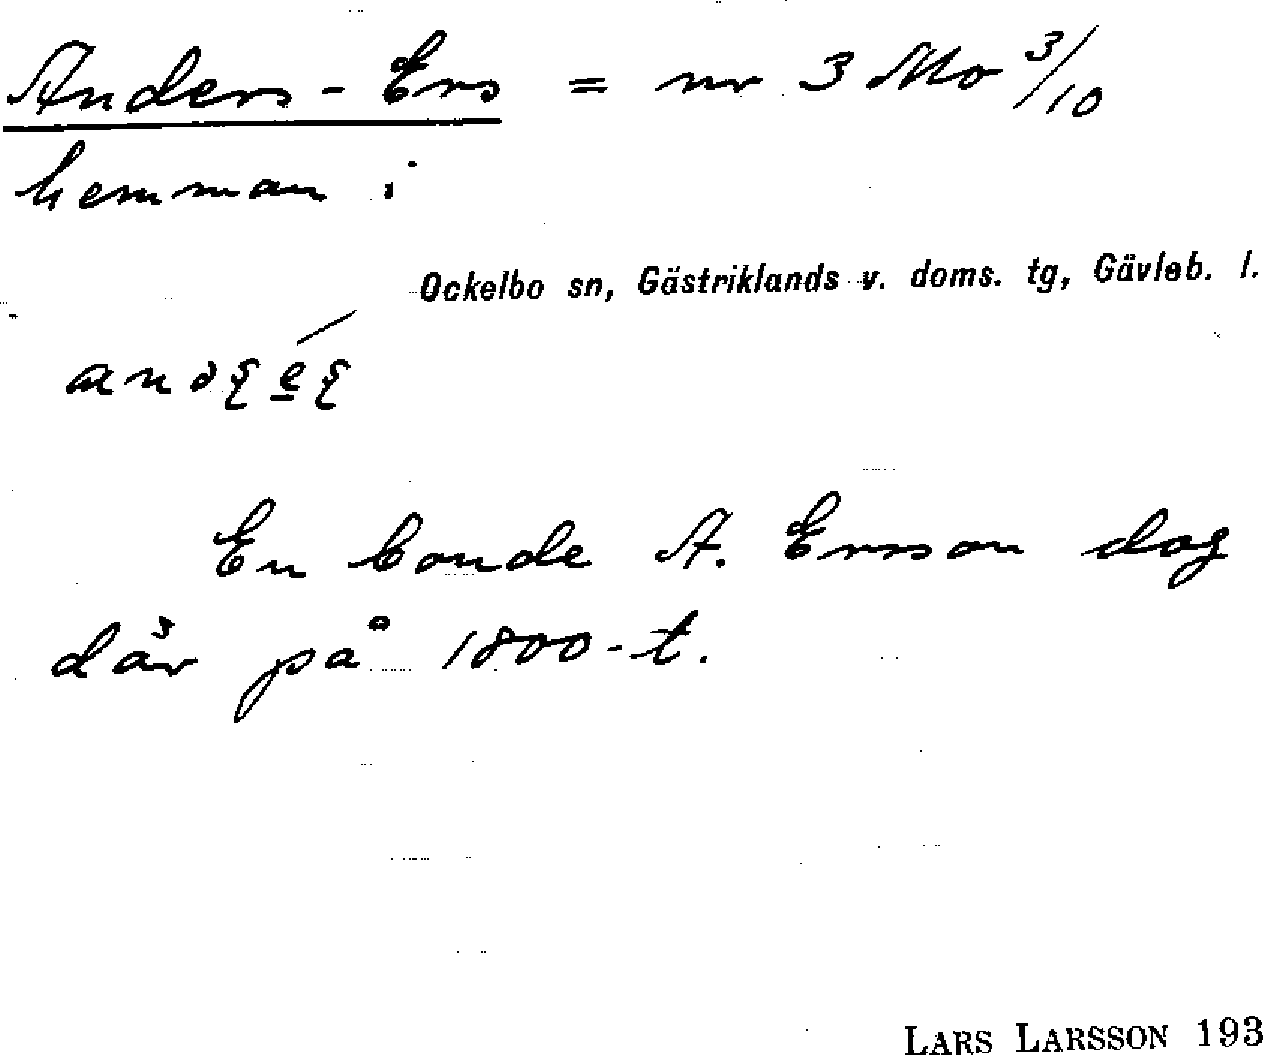 Anders-Ers = nr 3 Mo 3/10
hemman i
Ockelbo sn, Gästriklands v. doms. tg, Gävleb. l.
En bonde A. Ersson dog
där på 1800-t.
LARS LARSSON 193